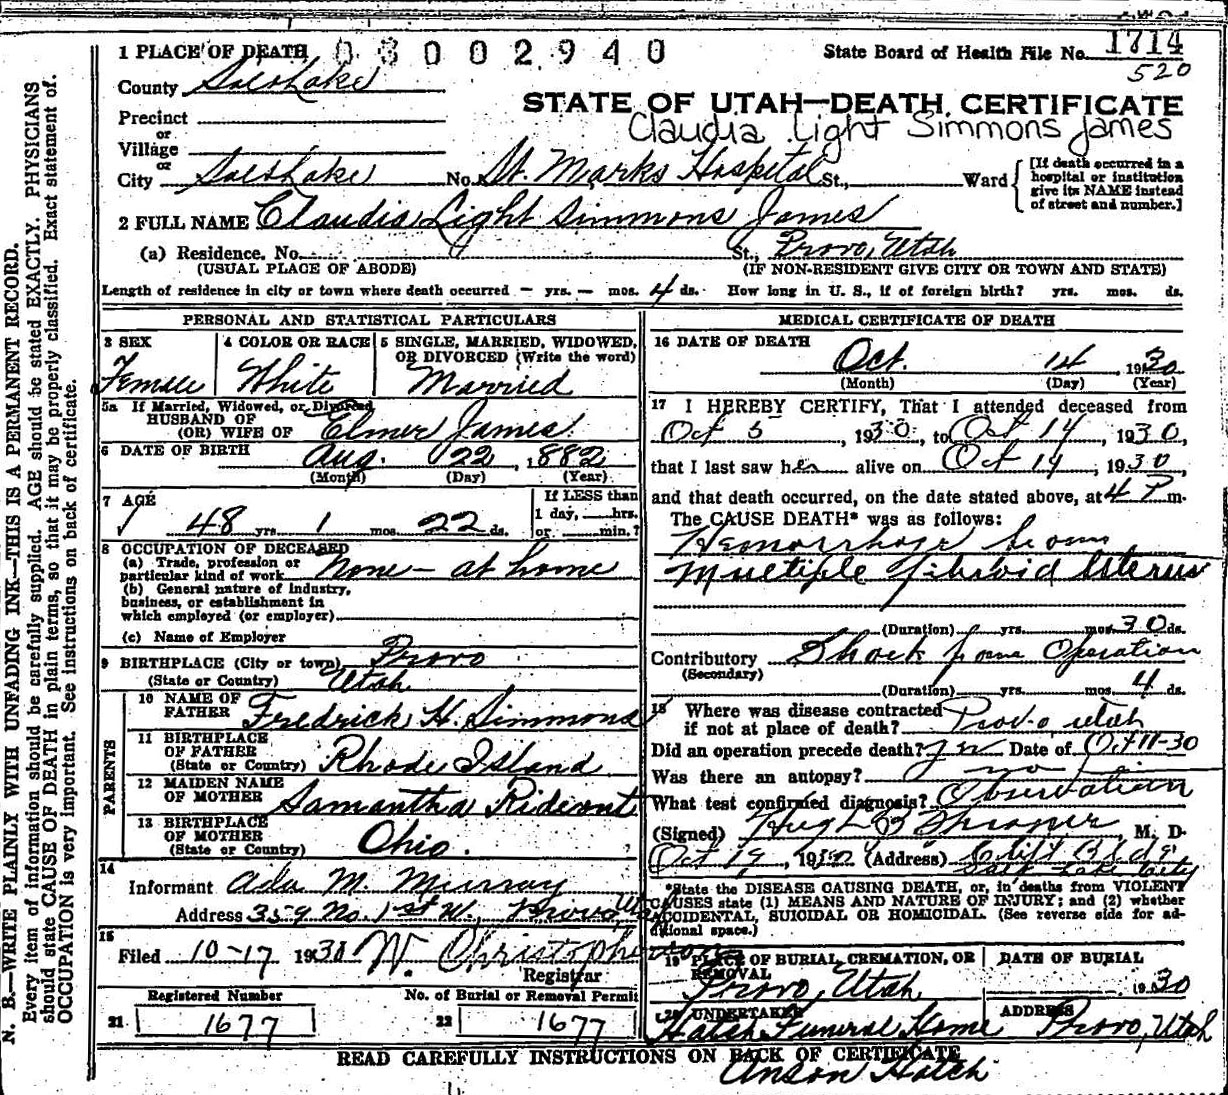 1 PLACE OF DEATH 03002940
State Board of Health File No. 1714
520
County Salt Lake
STATE OF UTAH—DEATH CERTIFICATE
Precinct
or
Claudia Light Simmons James
Village
or
City Salt Lake No. St. Marks Hospital St., Ward
[If death occurred in a hospital or institution give its NAME instead of street and number.]
2 FULL NAME Claudia Light Simmons James
(a) Residence. No. St., Provo, Utah
(USUAL PLACE OF ABODE) (IF NON-RESIDENT GIVE CITY OR TOWN AND STATE)
Length of residence in city or town where death occurred — yrs. — mos. 4 ds. How long in U. S., if of foreign birth? yrs. mos. ds.
PERSONAL AND STATISTICAL PARTICULARS
3 SEX 4 COLOR OR RACE 5 SINGLE, MARRIED, WIDOWED,
OR DIVORCED (Write the word)
Female White Married
5a If Married, Widowed, or Divorced
HUSBAND OF
(OR) WIFE OF Elmer James
6 DATE OF BIRTH Aug. 22, 1882
(Month) (Day) (Year)
7 AGE If LESS than
1 day, hrs.
48 yrs. 1 mos. 22 ds. or min.?
8 OCCUPATION OF DECEASED
(a) Trade, profession or
particular kind of work None - at home
(b) General nature of industry,
business, or establishment in
which employed (or employer)
(c) Name of Employer
9 BIRTHPLACE (City or town) Provo
(State or Country) Utah
PARENTS
10 NAME OF
FATHER Fredrick H. Simmons
11 BIRTHPLACE
OF FATHER
(State or Country) Rhode Island
12 MAIDEN NAME
OF MOTHER Samantha Rideout
13 BIRTHPLACE
OF MOTHER
(State or Country) Ohio.
14
Informant Ada M. Murray
Address 359 No. 1st W., Provo Utah
15
Filed 10-17 1930 W. Christopherson
Registrar
Registered Number No. of Burial or Removal Permit
21 1677 22 1677
MEDICAL CERTIFICATE OF DEATH
16 DATE OF DEATH
Oct. 14, 1930
(Month) (Day) (Year)
17 I HEREBY CERTIFY, That I attended deceased from
Oct 5, 1930, to Oct 14, 1930,
that I last saw her alive on Oct 14, 1930,
and that death occurred, on the date stated above, at 4 P m.
The CAUSE DEATH* was as follows:
Hemorrhage from
Multiple Fibroid Uterus
(Duration) yrs. mos. 30 ds.
Contributory Shock from Operation
(Secondary)
(Duration) yrs. mos. 4 ds.
18 Where was disease contracted
if not at place of death? Provo, Utah
Did an operation precede death? Date of Oct 11-30
Was there an autopsy? no
What test confirmed diagnosis? Observation
(Signed) Hugh B., M. D.
Oct 19, 19 (Address) Clift Bldg
Salt Lake City
*State the DISEASE CAUSING DEATH, or, in deaths from VIOLENT
CAUSES state (1) MEANS AND NATURE OF INJURY; and (2) whether
ACCIDENTAL, SUICIDAL OR HOMICIDAL. (See reverse side for ad-
ditional space.)
19 PLACE OF BURIAL, CREMATION, OR REMOVAL DATE OF BURIAL
Provo, Utah 1930
20 UNDERTAKER ADDRESS
Hatch Funeral Home Provo, Utah
READ CAREFULLY INSTRUCTIONS ON BACK OF CERTIFICATE
Anson Hatch
N. B.—WRITE PLAINLY WITH UNFADING INK—THIS IS A PERMANENT RECORD.
Every item of information should be carefully supplied. AGE should be stated EXACTLY. PHYSICIANS
should state CAUSE OF DEATH in plain terms, so that it may be properly classified. Exact statement of
OCCUPATION is very important. See instructions on back of certificate.